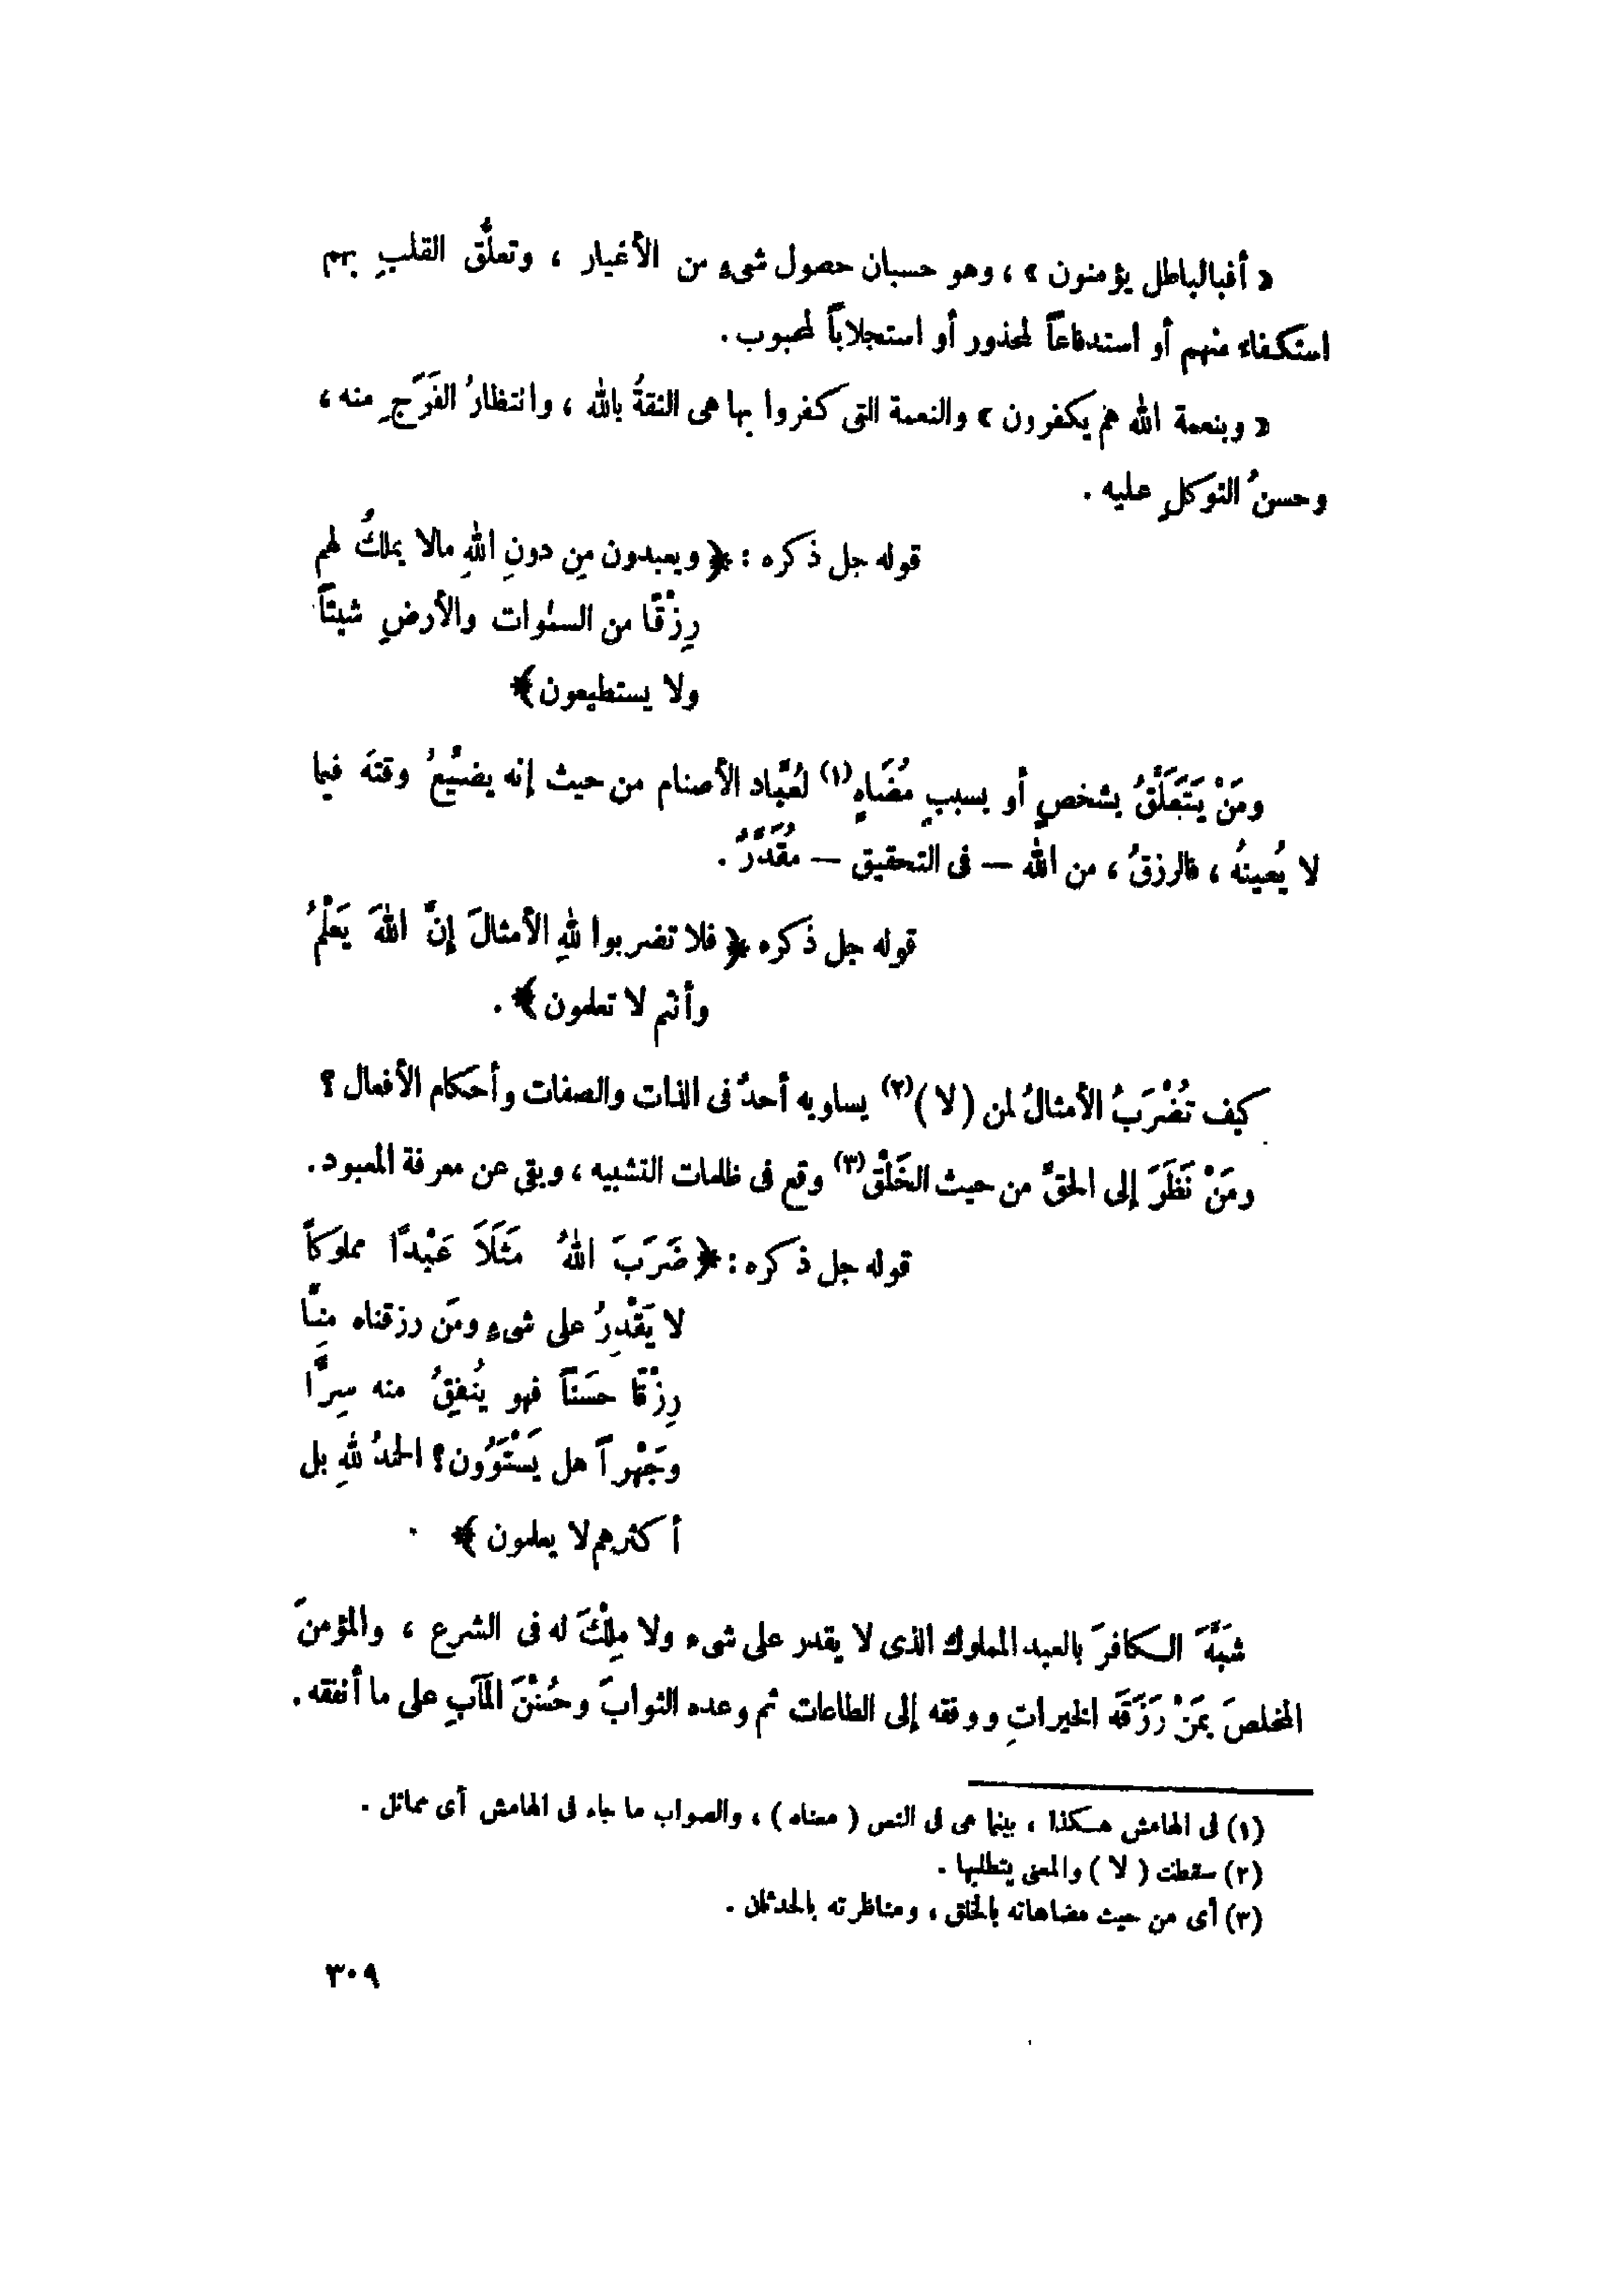 « أفبالباطل يؤمنون » ، وهو حسبان حصول شىءٍ من الأغيار ، وتعلُّق القلبِ بهم
استكفاءً منهم أو استدفاعاً لمحذور أو استجلاباً لمحبوب .
« وبنعمة الله هم يكفرون » والنعمة التى كفروا بها هى الثقةُ بالله ، وانتظارُ الفَرَجِ منه ،
وحسنُ التوكلِ عليه .
قوله جل ذكره : ﴿ ويعبدون مِن دونِ اللهِ مالا يملكُ لهم
رِزْقًا من السمٰوات والأرضِ شيئاً
ولا يستطيعون ﴾
ومَنْ يَتَعَلَّقُ بشخصٍ أو بسببٍ مُضَاهٍ (١) لعُبَّاد الأصنام من حيث إنه يضيِّعُ وقتَه فيما
لا يُعينُه ، فالرزقُ ، من الله — فى التحقيق — مُقَدَّرٌ .
قوله جل ذكره ﴿ فلا تضربوا للهِ الأمثالَ إنَّ اللهَ يَعْلَمُ
وأنتم لا تعلمون ﴾ .
كيف تُضْرَبُ الأمثالُ لمن ( لا ) (٢) يساويه أحدٌ فى الذات والصفات وأحكام الأفعال ؟
ومَنْ نَظَرَ إلى الحقِّ من حيث الخَلْقِ (٣) وقع فى ظلمات التشبيه ، وبقى عن معرفة المعبود .
قوله جل ذكره : ﴿ ضَرَبَ اللهُ مَثَلَاً عَبْدًا مملوكاً
لا يَقْدِرُ على شىءٍ ومَن رزقناه مِنَّا
رِزْقًا حَسَناً فهو يُنفِقُ منه سِرًّا
وجَهْراً هل يَسْتَوُون ؟ الحمدُ للهِ بل
أكثرهم لا يعلمون ﴾ .
شَبَّهَ الكافرَ بالعبد المملوك الذى لا يقدر على شىء ولا مِلْكَ له فى الشرع ، والمؤمنَ
المخلصَ بمَنْ رَزَقَه الخيراتِ ووفقه إلى الطاعات ثم وعده الثوابَ وحُسْنَ المآبِ على ما أنفقه .
(١) فى الهامش هكذا ، بينما هى فى النص ( معناه ) ، والصواب ما جاء فى الهامش أى مماثل .
(٢) سقطت ( لا ) والمعنى يتطلبها .
(٣) أى من حيث مضاهاته بالخلق ، ومناظرته بالحدثان .
٣٠٩